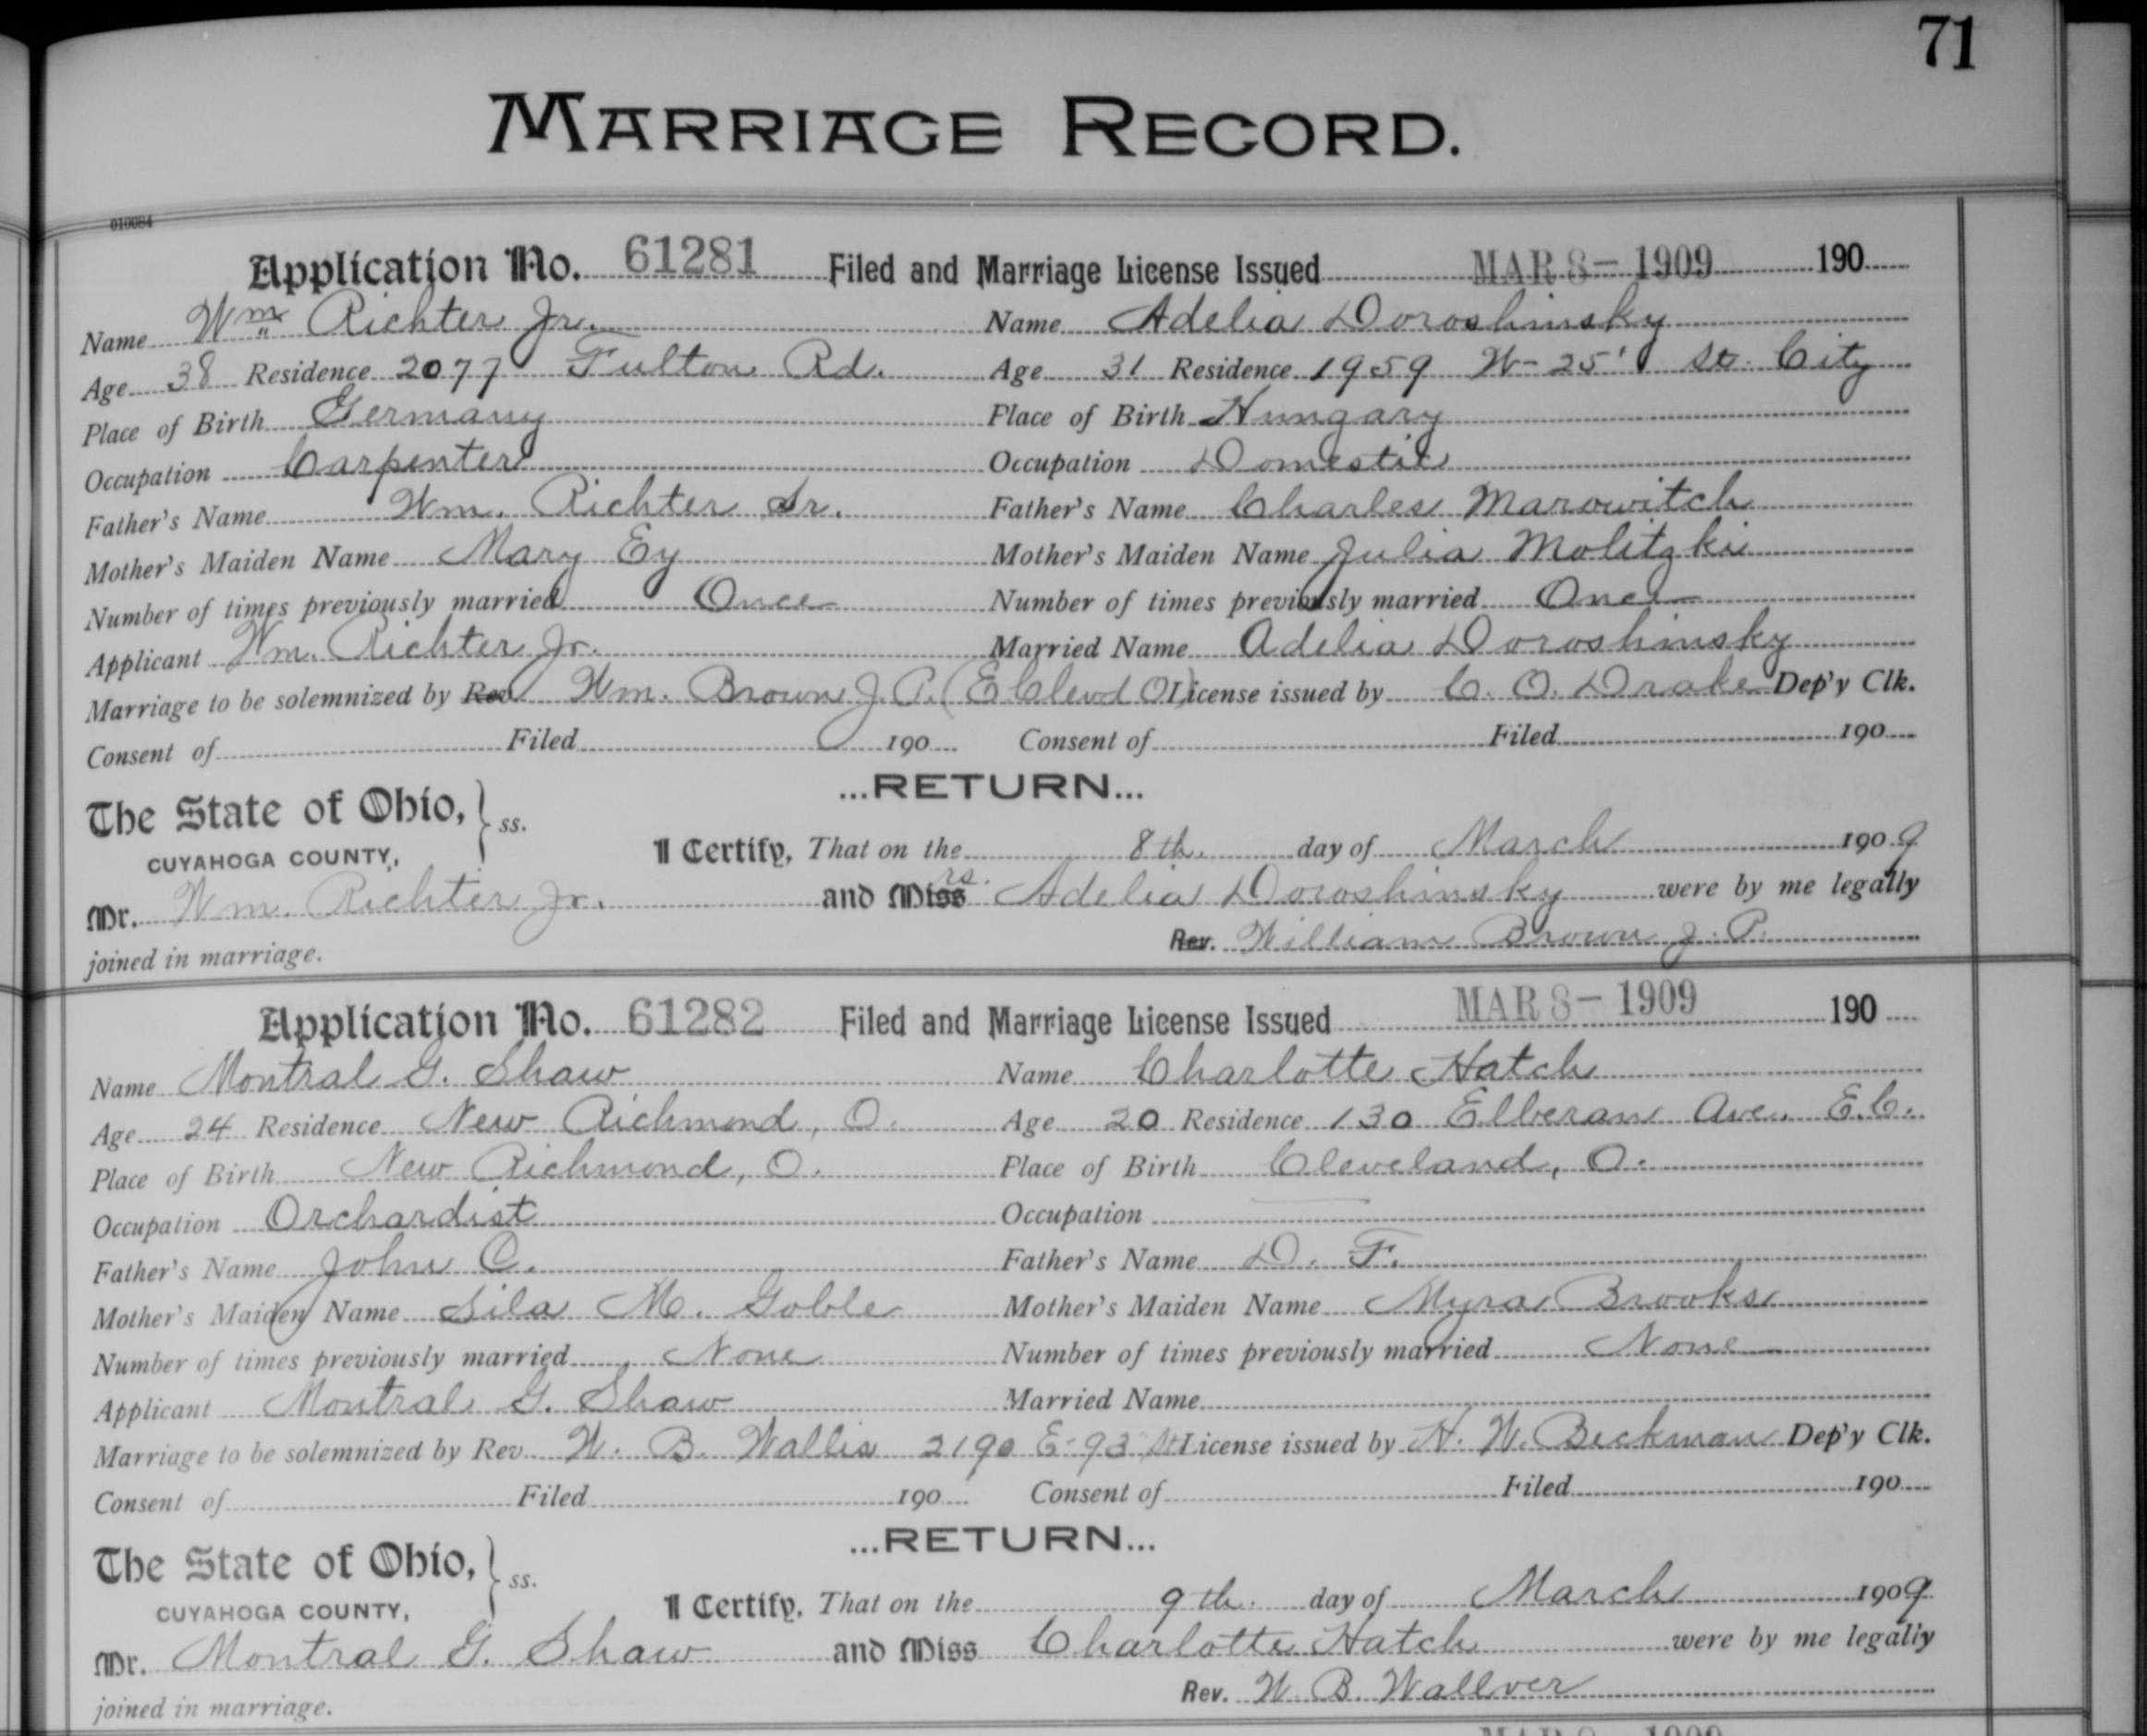 71
MARRIAGE RECORD.
010084
Application No. 61281 Filed and Marriage License Issued MAR 8- 1909 190
Name Wm Richter Jr. Name Adelia Doroshinsky
Age 38 Residence 2077 Fulton Rd. Age 31 Residence 1959 W-25' St. City
Place of Birth Germany Place of Birth Hungary
Occupation Carpenter Occupation Domestic
Father's Name Wm. Richter Sr. Father's Name Charles Marowitch
Mother's Maiden Name Mary Ey Mother's Maiden Name Julia Molitzki
Number of times previously married Once Number of times previously married Once
Applicant Wm. Richter Jr. Married Name Adelia Doroshinsky
Marriage to be solemnized by Rev. Wm. Brown J. P. (E Clevd O) License issued by C. O. Drake Dep'y Clk.
Consent of Filed 190 Consent of Filed 190
...RETURN...
The State of Ohio, } ss.
CUYAHOGA COUNTY,
I Certify, That on the 8th. day of March 1909
Mr. Wm. Richter Jr. and Miss rs. Adelia Doroshinsky were by me legally
joined in marriage. Rev. William Brown J. P.
Application No. 61282 Filed and Marriage License Issued MAR 8- 1909 190
Name Montral G. Shaw Name Charlotte Hatch
Age 24 Residence New Richmond, O. Age 20 Residence 130 Elberan Ave. E.C.
Place of Birth New Richmond, O. Place of Birth Cleveland, O.
Occupation Orchardist Occupation
Father's Name John C. Father's Name D. F.
Mother's Maiden Name Lila M. Goble Mother's Maiden Name Myra Brooks
Number of times previously married None Number of times previously married None
Applicant Montral G. Shaw Married Name
Marriage to be solemnized by Rev. W. B. Wallis 2190 E-93 St License issued by H. W. Beckman Dep'y Clk.
Consent of Filed 190 Consent of Filed 190
...RETURN...
The State of Ohio, } ss.
CUYAHOGA COUNTY,
I Certify, That on the 9th. day of March 1909
Mr. Montral G. Shaw and Miss Charlotte Hatch were by me legally
joined in marriage. Rev. W. B. Wallver